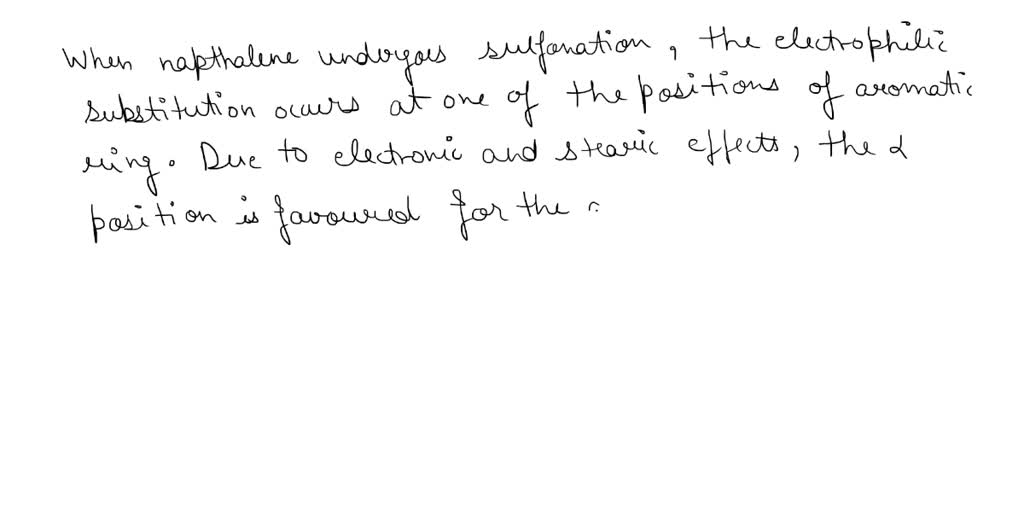 When napthalene undergoes sulfonation, the electrophilic
substitution occurs at one of the positions of aromatic
ring. Due to electronic and stearic effects, the α
position is favoured for the